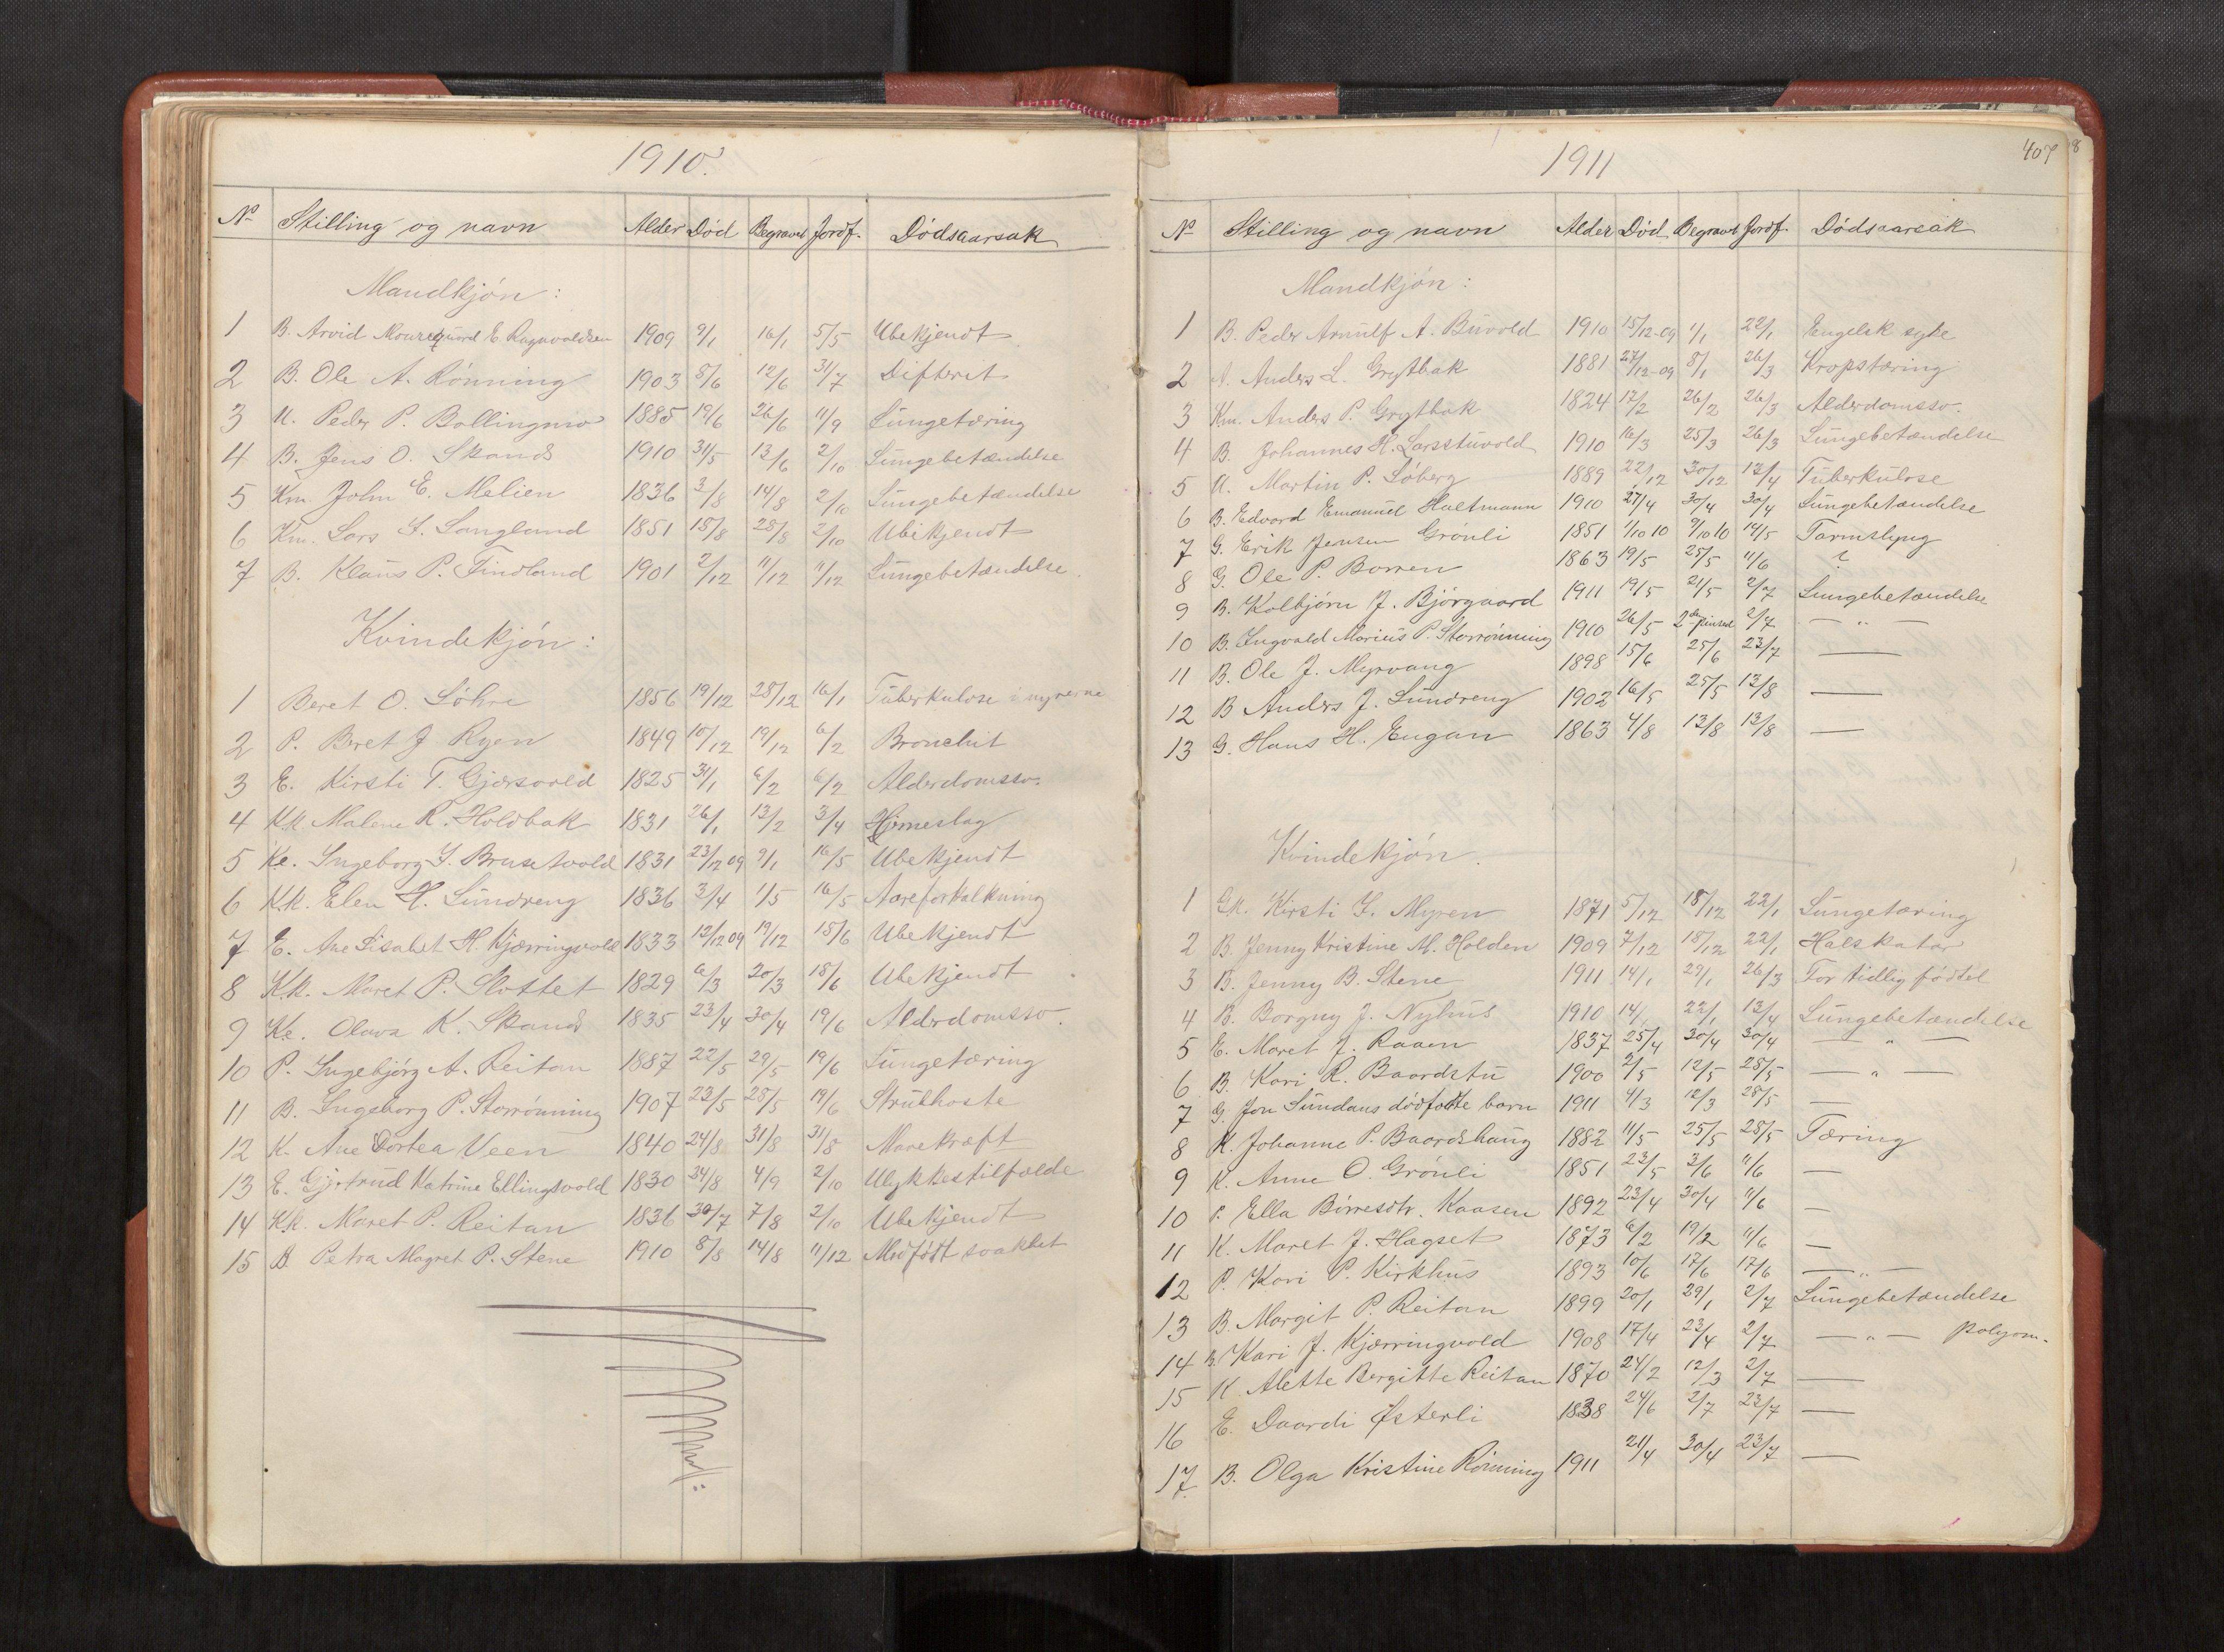 1910.
No Stilling og navn Alder Død Begravet Jordf. Dødsaarsak
Mandkjøn:
1 B. Arvid E. Ragnvaldsen 1909 9/1 16/1 5/5 Ubekjendt
2 B. Ole A. Rønning 1903 8/6 12/6 31/7 Difterit
3 U. Peder P. Bollingmo 1885 19/6 26/6 11/9 Lungetæring
4 B. Jens O. Skands 1910 31/5 13/6 2/10 Lungebetændelse
5 Km. John E. Melien 1836 3/8 14/8 2/10 Lungebetændelse
6 Km. Lars I. Langland 1851 18/8 28/8 2/10 Ubekjendt
7 B. Klaus P. Findland 1901 2/12 11/12 11/12 Lungebetændelse.
Kvindekjøn:
1 Beret O. Løhre 1856 19/12 28/12 16/1 Tuberkulose i nyrerne
2 P. Beret J Ryen 1849 10/12 19/12 6/2 Bronchit
3 E. Kirsti T. Gjersvold 1825 31/1 6/2 6/2 Alderdomssv.
4 Kk Malene R. Holdbak 1831 26/1 13/2 3/4 Hjerneslag
5 Ke. Ingeborg I. Brusetvold 1831 23/12 09 9/1 16/5 Ubekjendt
6 K.k. Elen H. Lundreng 1836 3/4 1/5 16/5 Aareforkalkning
7 E. Ane Lisabet H. Kjærringvold 1833 12/12 09 19/12 15/6 Ubekjendt
8 K.k. Maret P. Slottet 1829 6/3 20/3 18/6 Ubekjendt
9 Ke. Olava K. Skands 1835 23/4 30/4 19/6 Alderdomssv.
10 P. Ingebjørg A. Reitan 1887 22/5 29/5 19/6 Lungetæring
11 B. Ingeborg P. Storrønning 1907 23/5 28/5 19/6 Strubhoste
12 K. Ane Dortea Veen 1840 24/8 31/8 31/8 Mavekræft
13 E. Gjertrud Katrine Ellingsvold 1830 34/8 4/9 2/10 Ulykkestilfælde
14 Kk. Maret P. Reitan 1836 30/7 7/8 2/10 Ubekjendt
15 B. Petra Magret P. Stene 1910 8/8 14/8 11/12 Medfødt svakhet
407
8
1911
No Stilling og navn Alder Død Begravet Jordf. Dødsaarsak
Mandkjøn:
1 B. Peder Arnulf A. Buvold 1910 15/12-09 1/1 22/1 Engelsk syke
2 Anders L. Grytbak 1881 27/12-09 8/1 26/3 Kropstæring
3 Km. Anders P. Grytbak 1824 17/2 26/2 26/3 Alderdomssv.
4 B. Johannes H. Larsstuvold 1910 16/3 25/3 26/3 Lungebetændelse
5 U. Martin P. Løberg 1889 22/12 30/12 13/4 Tuberkulose
6 B. Edvard Emanuel Haltmann 1910 27/4 30/4 30/4 Lungebetændelse
7 G. Erik Jensen Grønli 1851 1/10 10 9/10 10 14/5 Tarmslyng
8 G. Ole P. Borren 1863 19/5 25/5 11/6 ?
9 B. Kolbjørn J. Bjørgaard 1911 19/5 21/5 2/7 Lungebetændelse
10 B. Ingvald Marius P. Storrønning 1910 26/5 2den pinsed 2/7 — " —
11 B. Ole J. Myrvang 1898 15/6 25/6 23/7 —
12 B Anders J. Lundreng 1902 16/5 25/5 13/8 —
13 G. Hans H. Engan 1863 4/8 13/8 13/8 —
Kvindekjøn.
1 Gk. Kirsti I. Myren 1871 5/12 18/12 22/1 Lungetæring
2 B. Jenny Kristine M. Holden 1909 7/12 18/12 22/1 Halskatar
3 B. Jenny B. Stene 1911 14/1 29/1 26/3 For tidlig fødsel
4 B. Borgny J. Nyhus 1910 14/1 22/1 13/4 Lungebetændelse
5 E. Maret J. Raaen 1837 25/4 30/4 30/4 — " —
6 B. Kari R. Baardstu 1900 2/5 12/5 28/5 — " —
7 G. Jon Sundans dødfødte barn 1911 4/3 12/3 28/5 —
8 K. Johanne P. Baardshaug 1882 11/5 25/5 28/5 Tæring
9 K. Anne O. Grønli 1851 23/5 3/6 11/6 —
10 P. Ella Børresdtr. Kaasen 1892 23/4 30/4 11/6 —
11 K. Maret J. Hagset 1873 6/2 19/2 11/6 —
12 P. Kari P. Kirkhus 1893 10/6 17/6 17/6 — " —
13 B. Margit P. Reitan 1899 20/1 29/1 2/7 Lungebetændelse
14 B. Kari J. Kjærringvold 1908 17/4 23/4 2/7 — " —
15 K. Alette Bergitte Reitan 1870 24/2 12/3 2/7 —
16 E. Daardi Østerli 1838 24/6 2/7 23/7 —
17. B. Olga Kristine Rønning 1911 21/4 30/4 23/7 —